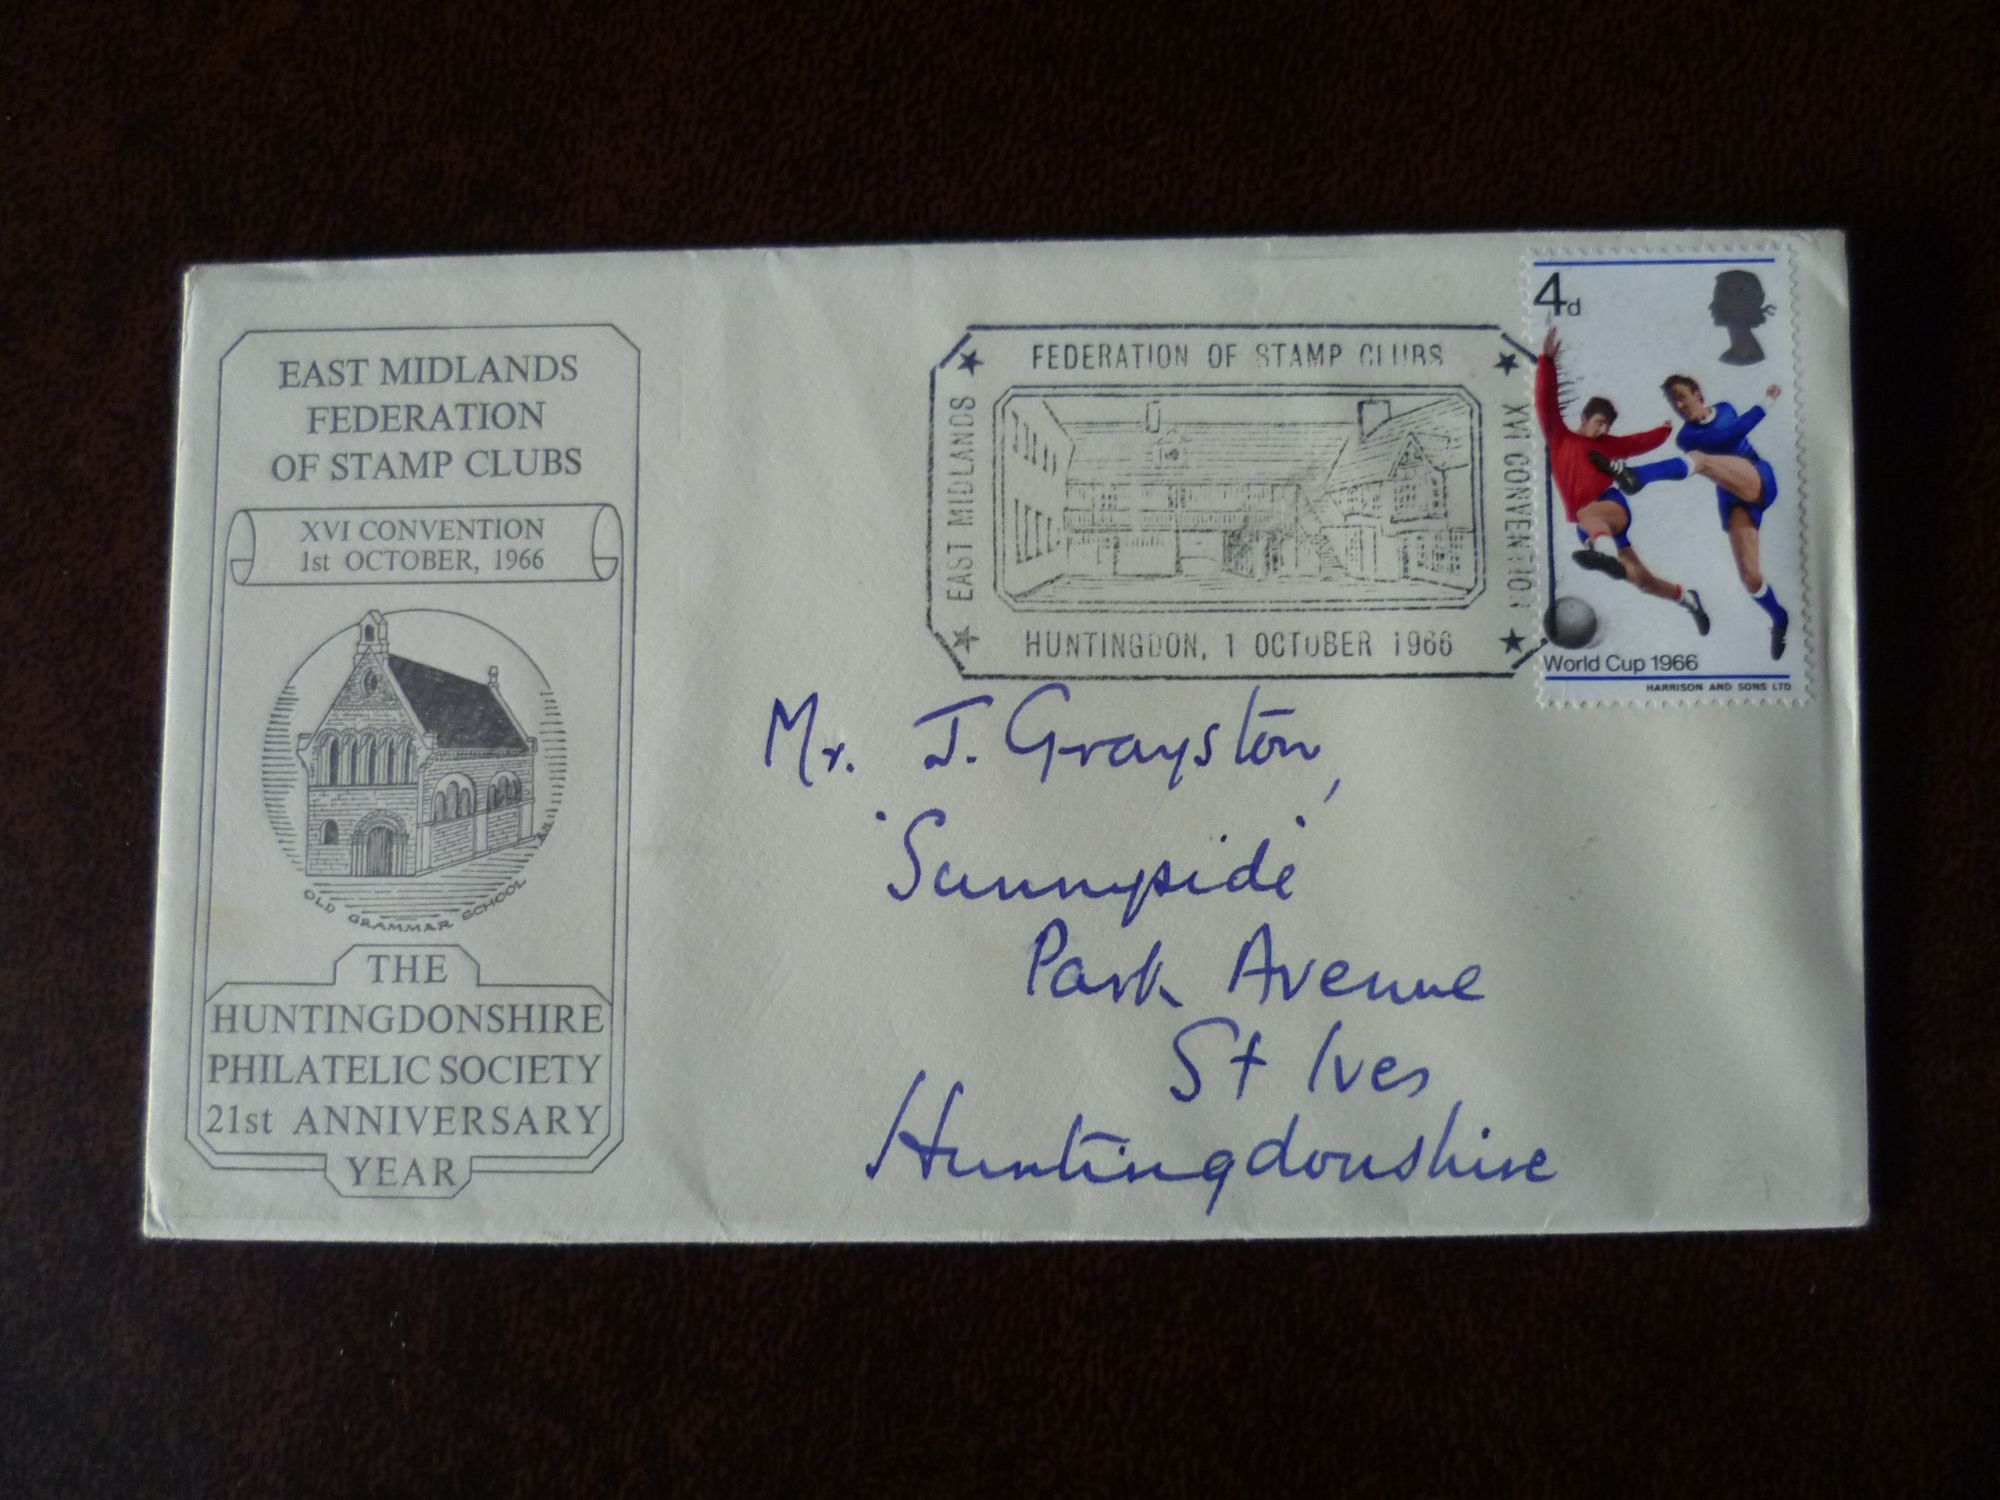 EAST MIDLANDS
FEDERATION
OF STAMP CLUBS
XVI CONVENTION
1st OCTOBER, 1966
OLD GRAMMAR SCHOOL
THE
HUNTINGDONSHIRE
PHILATELIC SOCIETY
21st ANNIVERSARY
YEAR
FEDERATION OF STAMP CLUBS
EAST MIDLANDS
XVI CONVENTION
HUNTINGDON, 1 OCTOBER 1966
4d
World Cup 1966
HARRISON AND SONS LTD
Mr. J. Grayston,
'Sunnyside'
Park Avenue
St Ives
Huntingdonshire